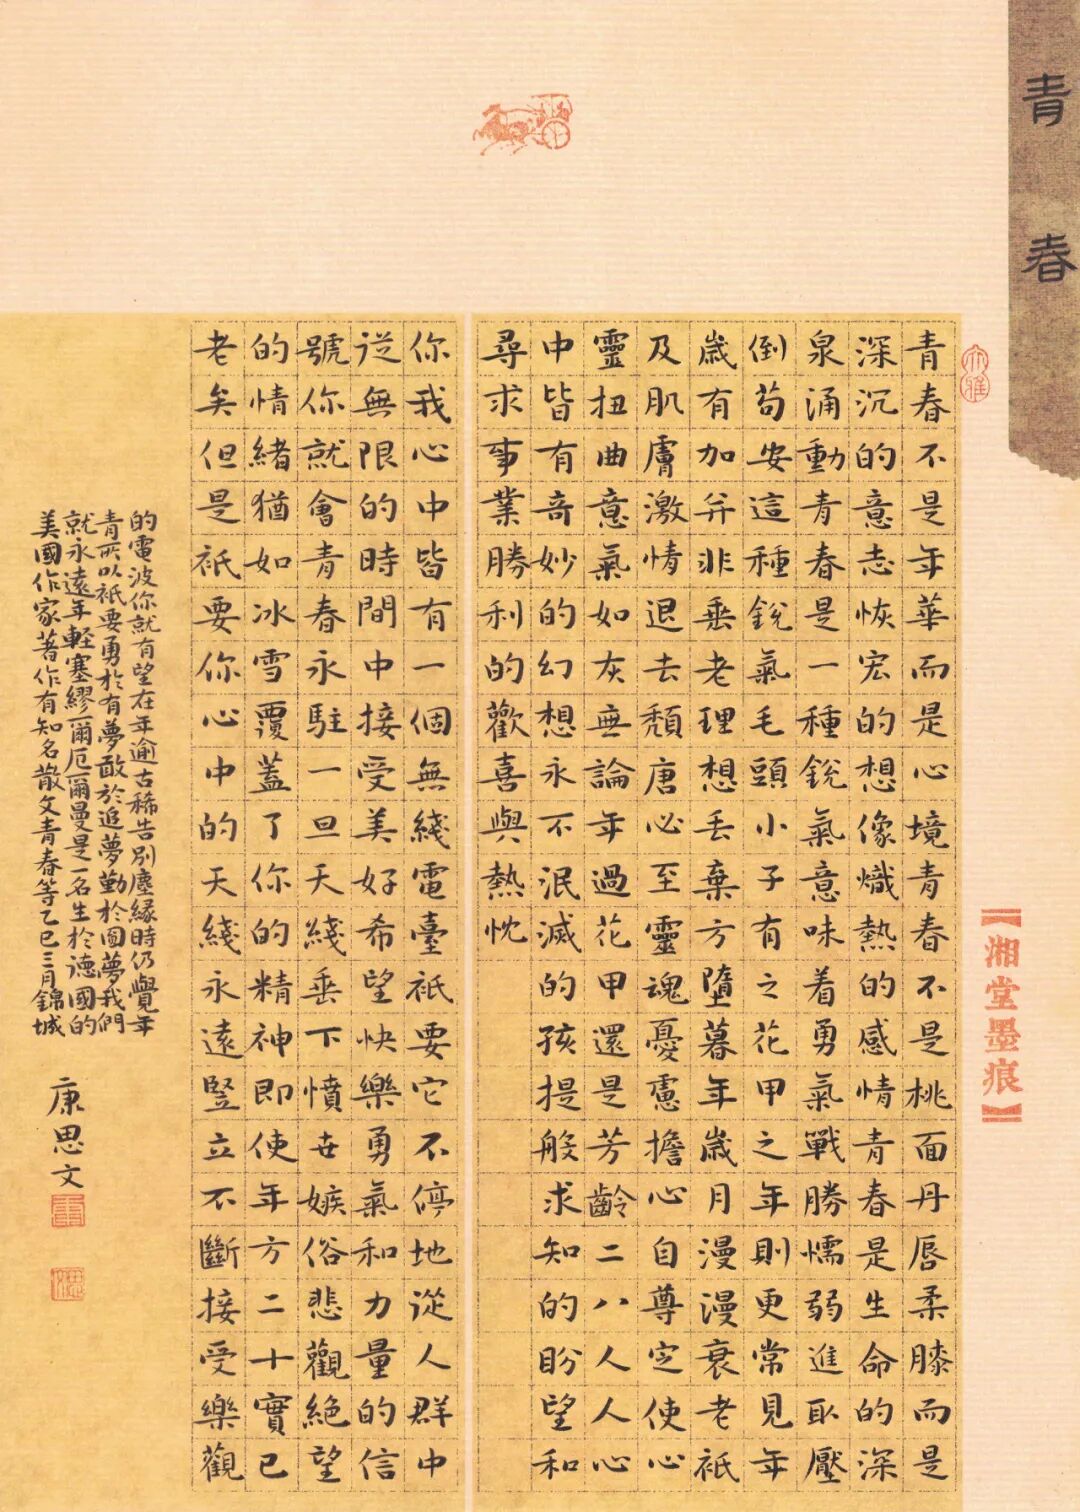 青春
大雅
【湘堂墨痕】
青春不是年華而是心境青春不是桃面丹唇柔膝而是
深沉的意志恢宏的想像熾熱的感情青春是生命的深
泉涌動青春是一種銳氣意味着勇氣戰勝懦弱進取壓
倒苟安這種銳氣毛頭小子有之花甲之年則更常見年
歲有加并非垂老理想丟棄方墮暮年歲月漫漫衰老祇
及肌膚激情退去頹唐必至靈魂憂慮擔心自尊定使心
靈扭曲意氣如灰無論年過花甲還是芳齡二八人人心
中皆有奇妙的幻想永不泯滅的孩提般求知的盼望和
尋求事業勝利的歡喜與熱忱
你我心中皆有一個無綫電臺祇要它不停地從人群中
從無限的時間中接受美好希望快樂勇氣和力量的信
號你就會青春永駐一旦天綫垂下憤世嫉俗悲觀絕望
的情緒猶如冰雪覆蓋了你的精神即使年方二十實已
老矣但是祇要你心中的天綫永遠豎立不斷接受樂觀
的電波你就有望在年逾古稀告別塵緣時仍覺年
青所以祇要勇於有夢敢於追夢勤於圓夢我們
就永遠年輕塞繆爾厄爾曼是一名生於德國的
美國作家著作有知名散文青春等乙巳三月錦城
康思文